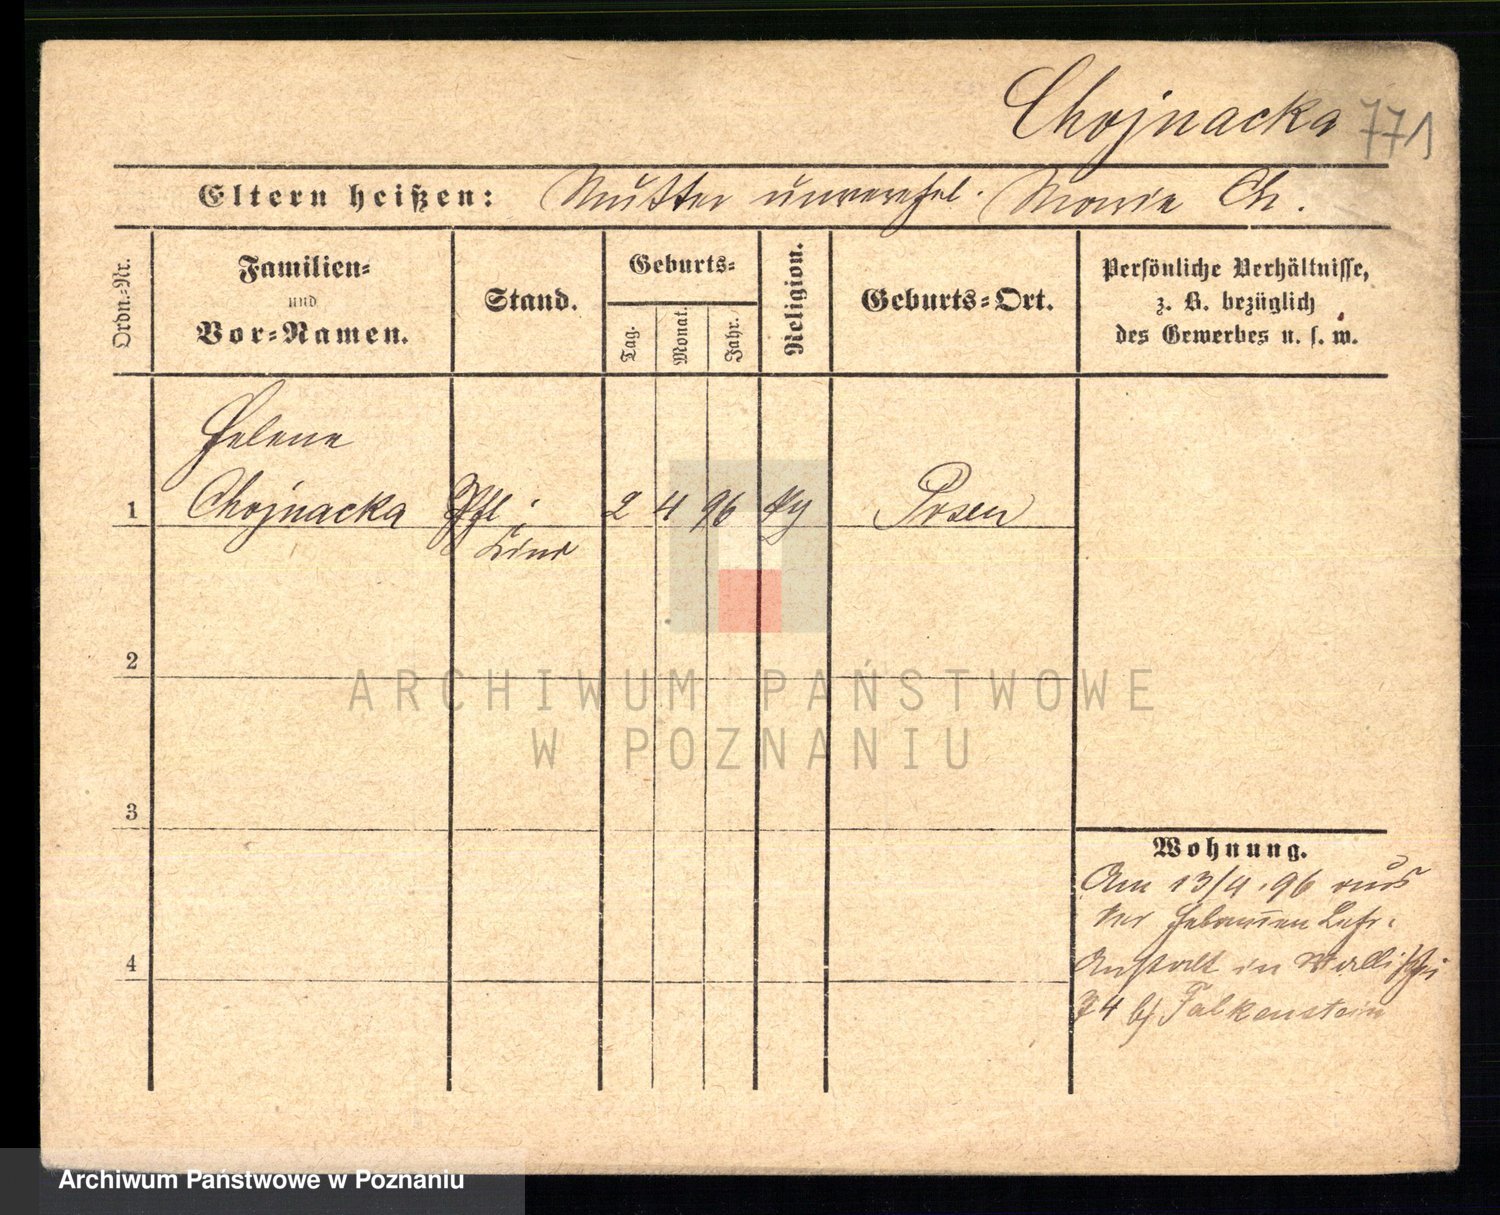 Chojnacka 771
Eltern heißen: Mutter unverehel. Marie Ch.
Ordn.-Nr.
Familien-
und
Vor-Namen.
Stand.
Geburts-
Tag.
Monat.
Jahr.
Religion.
Geburts-Ort.
Persönliche Verhältnisse,
z. B. bezüglich
des Gewerbes u. s. w.
Helene
1 Chojnacka Pfl. 2 4 96 Posen
Kind
2
3
4
Wohnung.
Am 13/4.96 aus
der Hebammen Lehr-
Anstalt in Wallischei
74 b/ Falkenstein
ARCHIWUM PAŃSTWOWE
W POZNANIU
Archiwum Państwowe w Poznaniu